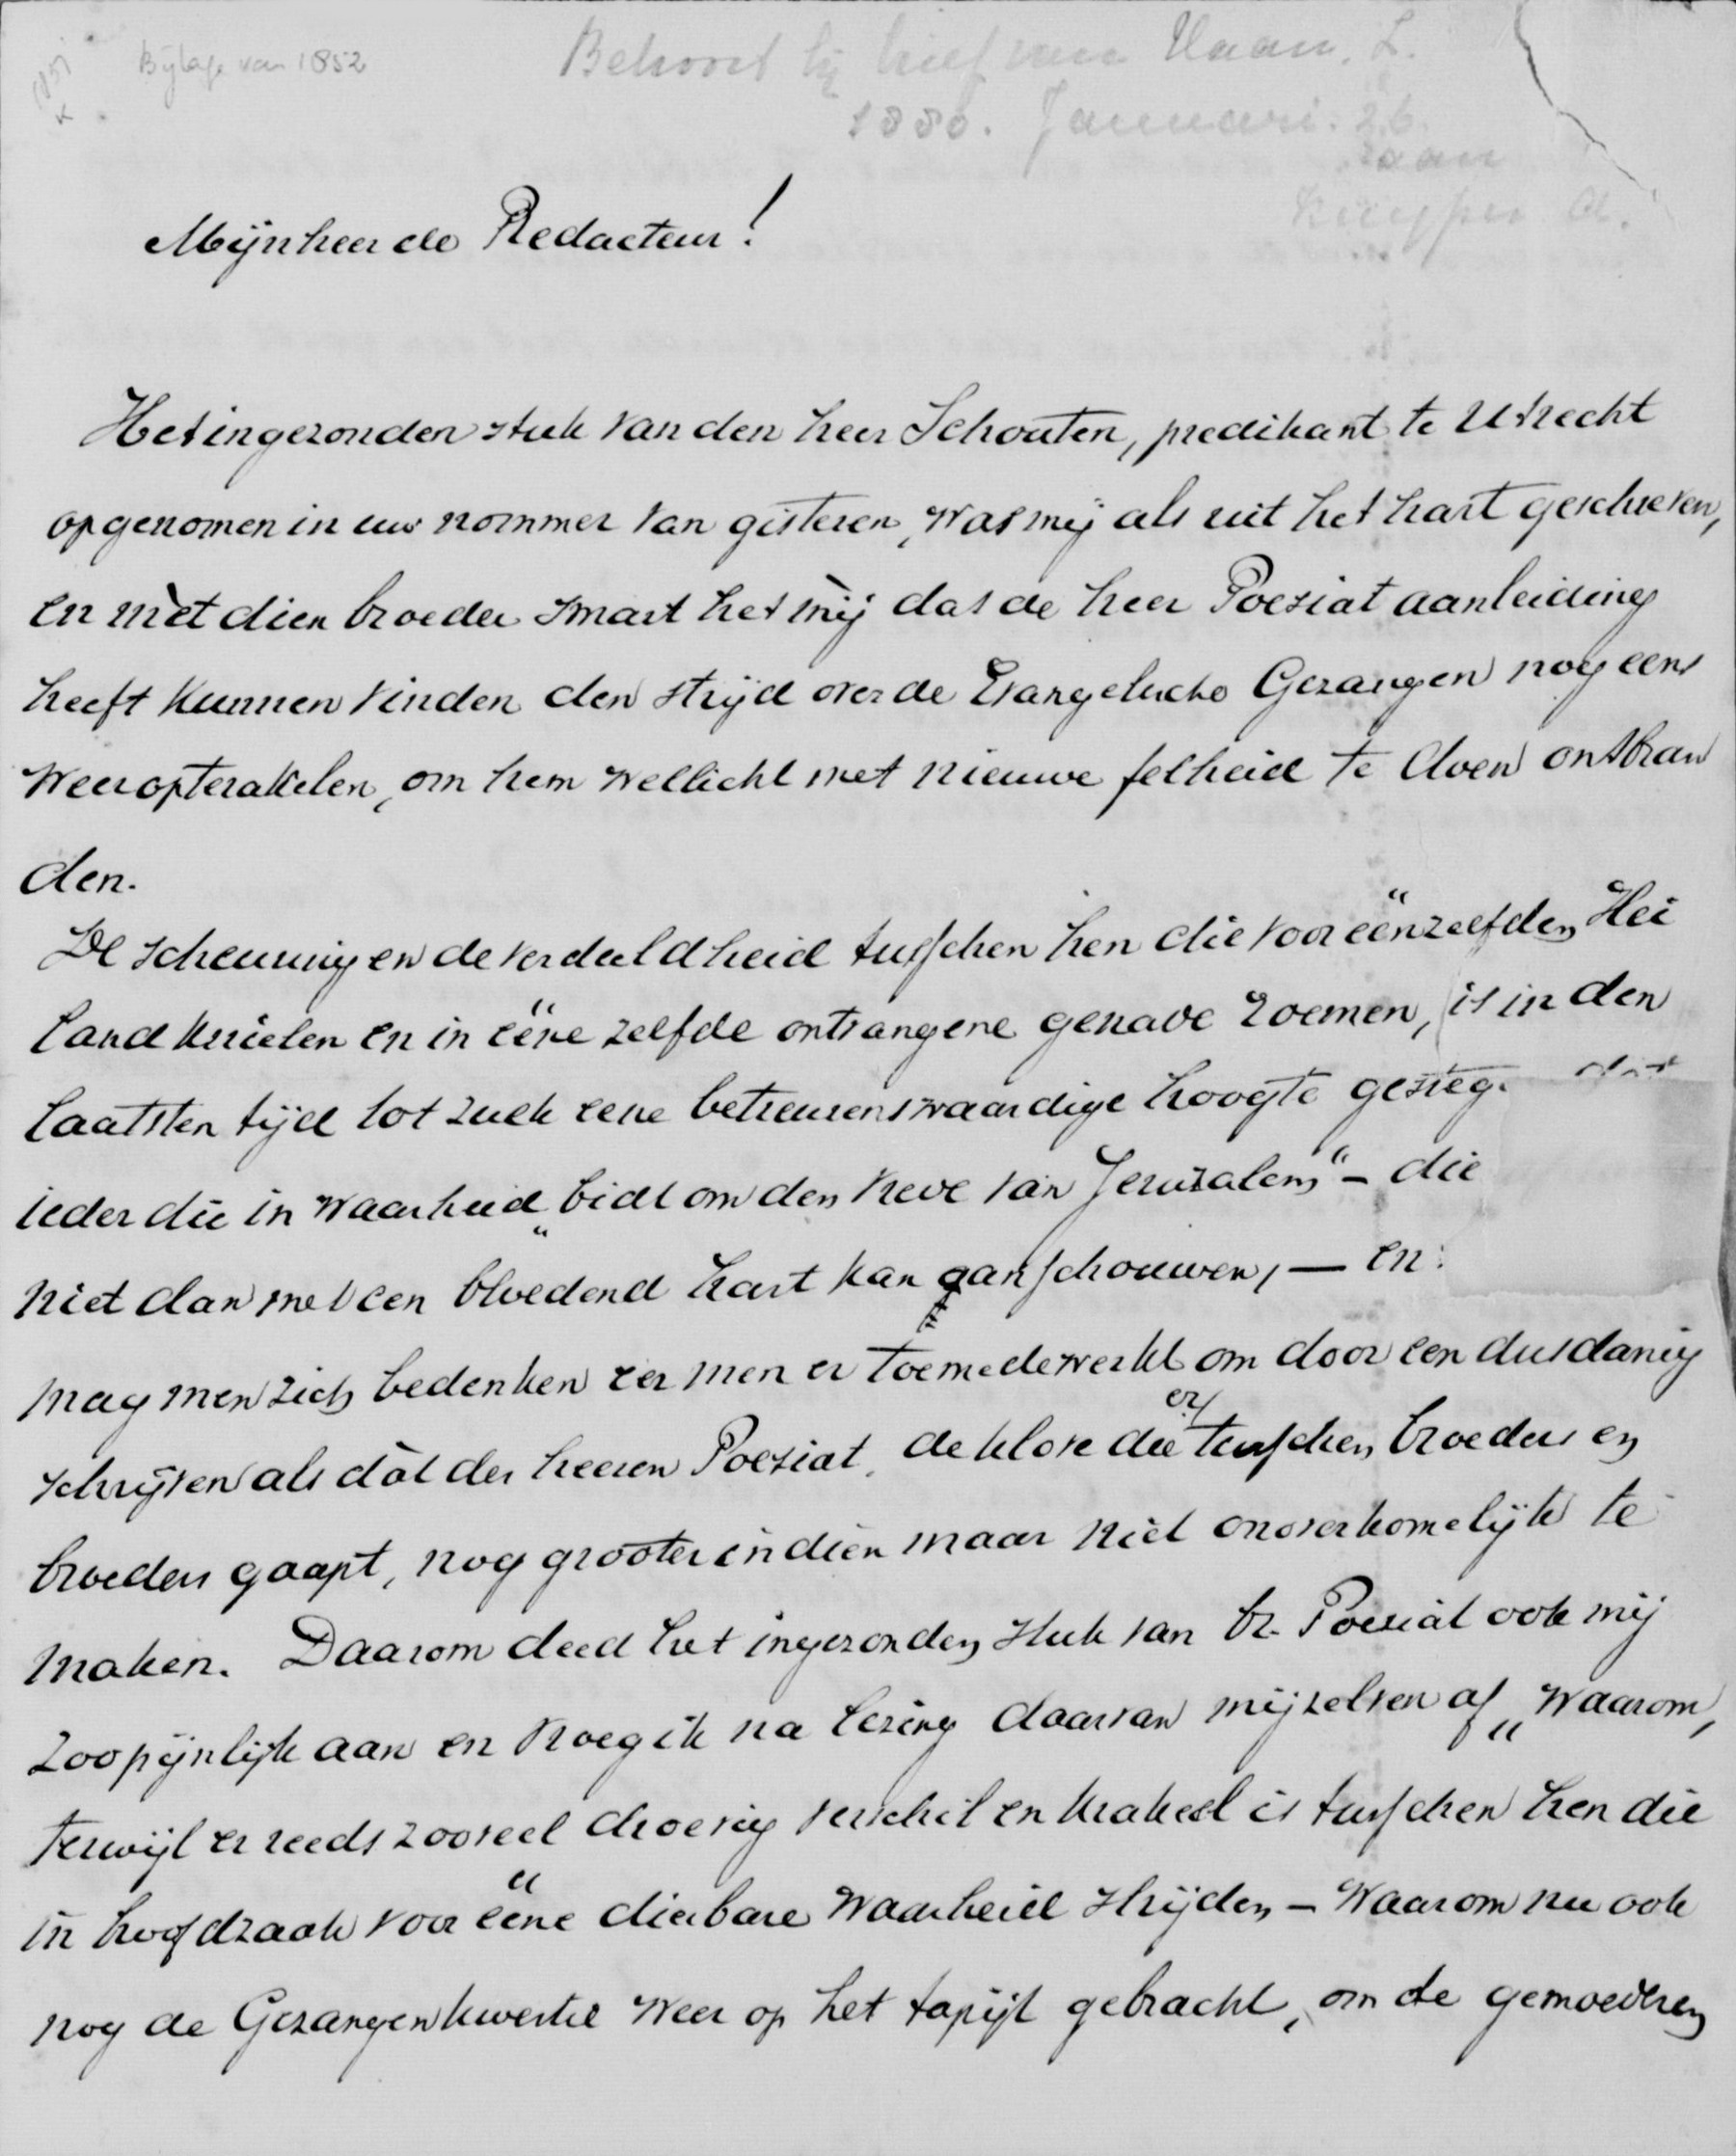 Bijlage van 1852
Behoort bij brief van Haan. L.
1880. Januari. 26.
aan
Kuyper A.
Mijnheer de Redacteur!
Het ingezonden stuk van den heer Schouten, predikant te Utrecht
opgenomen in uw nommer van gisteren, was mij als uit het hart geschreven,
en mèt dien broeder smart het mij dat de heer Poesiat aanleiding
heeft kunnen vinden den strijd over de Evangelische Gezangen nog eens
weer opterakelen, om hem wellicht met nieuwe felheid te doen ontbran
den.
De scheuring en de verdeeldheid tusschen hen die voor éénzelfden Hei
land knielen en in ééne zelfde ontvangene genade roemen, is in den
laatsten tijd tot zulk eene betreurenswaardige hoogte gesteg. dat
ieder die in waarheid „bidt om den vrede van Jeruzalem“ – die
niet dan met een bloedend hart kan aanschouwen, — en
mag men zich bedenken eer men er toe medewerkt om door een dusdanig
schrijven als dàt des heeren Poesiat, de klove die er tusschen broeders en
broeders gaapt, nog grooter indien maar niet onoverkomelijk te
maken. Daarom deed het ingezonden stuk van br. Poesiat ook mij
zoo pijnlijk aan en vroeg ik na lezing daarvan mijzelven af „Waarom,
terwijl er reeds zooveel droevig verschil en krakeel is tusschen hen die
in hoofdzaak voor ééne dierbare Waarheid strijden – Waarom nu ook
nog de Gezangenkwestie weer op het tapijt gebracht, om de gemoederen